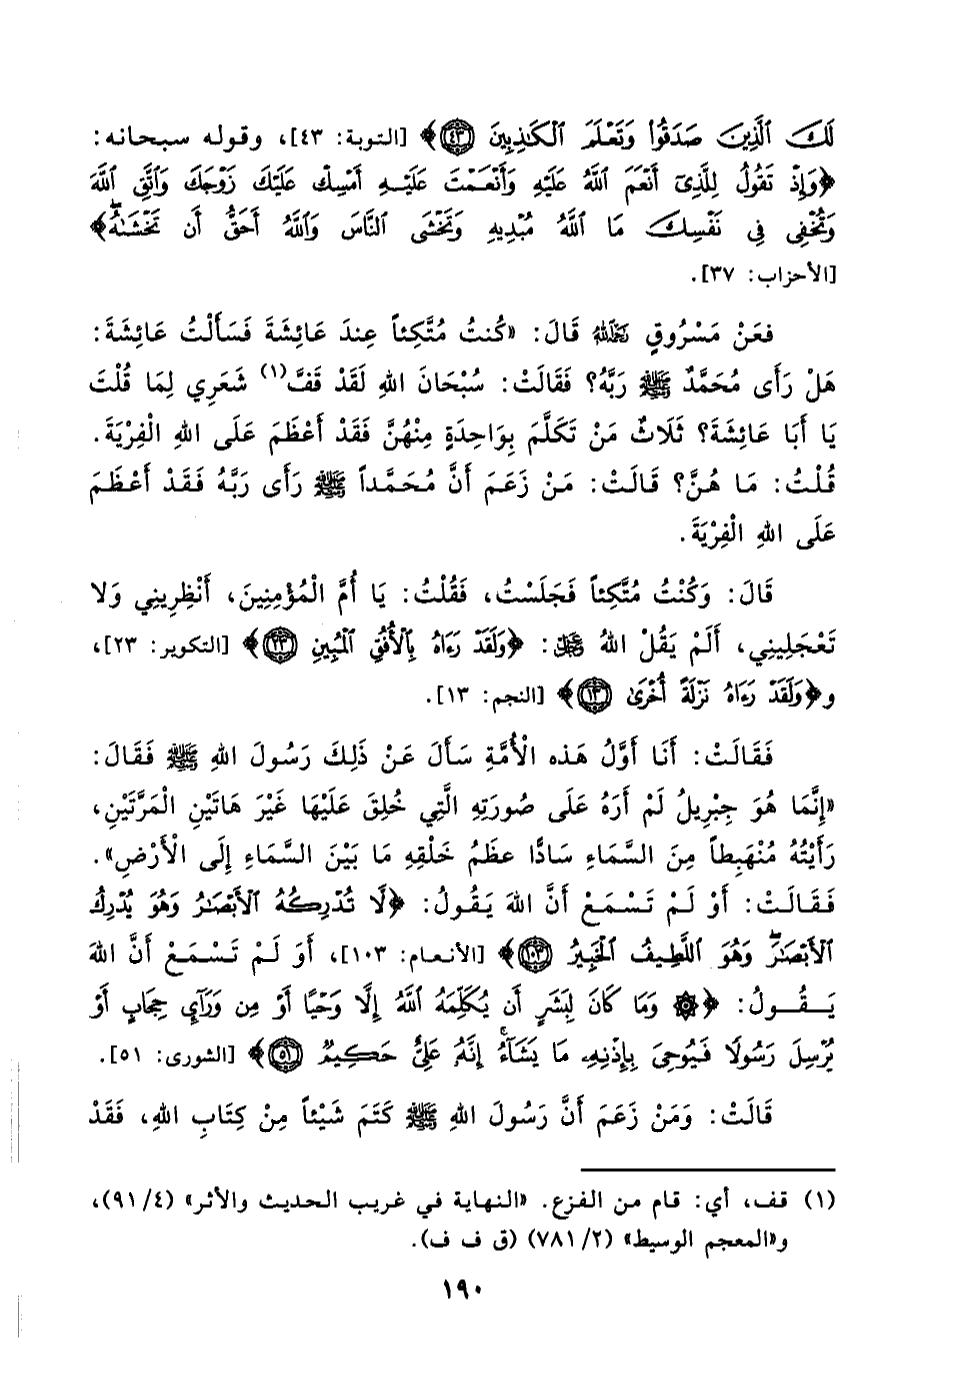 لَكَ ٱلَّذِينَ صَدَقُوا۟ وَتَعْلَمَ ٱلْكَـٰذِبِينَ ﴿٤٣﴾ [التوبة: ٤٣]، وقوله سبحانه:
﴿وَإِذْ تَقُولُ لِلَّذِىٓ أَنْعَمَ ٱللَّهُ عَلَيْهِ وَأَنْعَمْتَ عَلَيْهِ أَمْسِكْ عَلَيْكَ زَوْجَكَ وَٱتَّقِ ٱللَّهَ
وَتُخْفِى فِى نَفْسِكَ مَا ٱللَّهُ مُبْدِيهِ وَتَخْشَى ٱلنَّاسَ وَٱللَّهُ أَحَقُّ أَن تَخْشَىٰهُ ۖ﴾
[الأحزاب: ٣٧].
فعَنْ مَسْرُوقٍ رَحِمَهُ اللهُ قَالَ: «كُنتُ مُتَّكِئاً عِندَ عَائِشَةَ فَسَأَلْتُ عَائِشَةَ:
هَلْ رَأَى مُحَمَّدٌ ﷺ رَبَّهُ؟ فَقَالَتْ: سُبْحَانَ اللهِ لَقَدْ قَفَّ(١) شَعَرِي لِمَا قُلْتَ
يَا أَبَا عَائِشَةَ؟ ثَلَاثٌ مَنْ تَكَلَّمَ بِوَاحِدَةٍ مِنْهُنَّ فَقَدْ أَعْظَمَ عَلَى اللهِ الْفِرْيَةَ.
قُلْتُ: مَا هُنَّ؟ قَالَتْ: مَنْ زَعَمَ أَنَّ مُحَمَّداً ﷺ رَأَى رَبَّهُ فَقَدْ أَعْظَمَ
عَلَى اللهِ الْفِرْيَةَ.
قَالَ: وَكُنْتُ مُتَّكِئاً فَجَلَسْتُ، فَقُلْتُ: يَا أُمَّ الْمُؤْمِنِينَ، أَنْظِرِينِي وَلا
تَعْجَلِينِي، أَلَمْ يَقُلْ اللهُ ﷻ: ﴿وَلَقَدْ رَءَاهُ بِٱلْأُفُقِ ٱلْمُبِينِ ﴿٢٣﴾ [التكوير: ٢٣]،
و﴿وَلَقَدْ رَءَاهُ نَزْلَةً أُخْرَىٰ ﴿١٣﴾ [النجم: ١٣].
فَقَالَتْ: أَنَا أَوَّلُ هَذه الْأُمَّةِ سَأَلَ عَنْ ذَلِكَ رَسُولَ اللهِ ﷺ فَقَالَ:
«إِنَّمَا هُوَ جِبْرِيلُ لَمْ أَرَهُ عَلَى صُورَتِهِ الَّتِي خُلِقَ عَلَيْهَا غَيْرَ هَاتَيْنِ الْمَرَّتَيْنِ،
رَأَيْتُهُ مُنْهَبِطاً مِنَ السَّمَاءِ سَادًّا عظَمُ خَلْقِهِ مَا بَيْنَ السَّمَاءِ إِلَى الْأَرْضِ».
فَقَالَتْ: أَوْ لَمْ تَسْمَعْ أَنَّ اللهَ يَقُولُ: ﴿لَّا تُدْرِكُهُ ٱلْأَبْصَـٰرُ وَهُوَ يُدْرِكُ
ٱلْأَبْصَـٰرَ ۖ وَهُوَ ٱللَّطِيفُ ٱلْخَبِيرُ ﴿١٠٣﴾ [الأنعام: ١٠٣]، أَوَ لَمْ تَسْمَعْ أَنَّ اللهَ
يَقُولُ: ﴿۞ وَمَا كَانَ لِبَشَرٍ أَن يُكَلِّمَهُ ٱللَّهُ إِلَّا وَحْيًا أَوْ مِن وَرَآئِ حِجَابٍ أَوْ
يُرْسِلَ رَسُولًا فَيُوحِىَ بِإِذْنِهِۦ مَا يَشَآءُ ۚ إِنَّهُۥ عَلِىٌّ حَكِيمٌ ﴿٥١﴾ [الشورى: ٥١].
قَالَتْ: وَمَنْ زَعَمَ أَنَّ رَسُولَ اللهِ ﷺ كَتَمَ شَيْئاً مِنْ كِتَابِ اللهِ، فَقَدْ
(١) قف، أي: قام من الفزع. «النهاية في غريب الحديث والأثر» (٤/ ٩١)،
و«المعجم الوسيط» (٢/ ٧٨١) (ق ف ف).
١٩٠